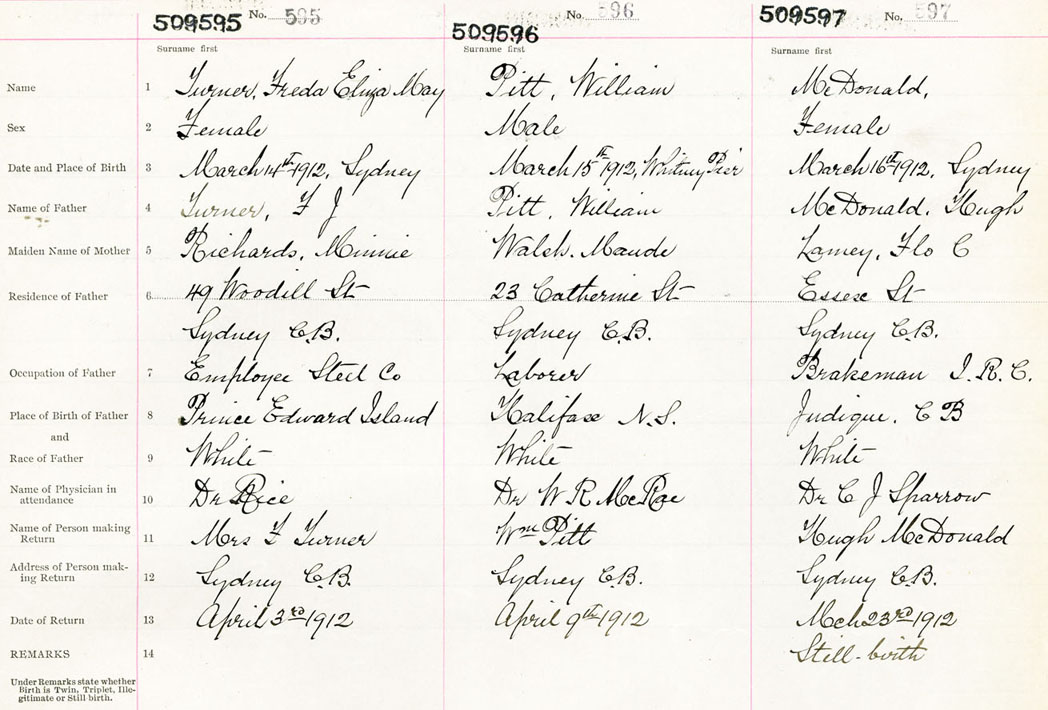 509595 No. 595 509596 No. 596 509597 No. 597
Surname first Surname first Surname first
Name 1 Turner, Freda Eliza May Pitt, William McDonald,
Sex 2 Female Male Female
Date and Place of Birth 3 March 14th 1912, Sydney March 15th 1912, Whitney Pier March 16th 1912, Sydney
Name of Father 4 Turner, F J Pitt, William McDonald, Hugh
Maiden Name of Mother 5 Richards, Minnie Walsh. Maude Lamey, Flo C
Residence of Father 6 49 Woodill St 23 Catherine St Essex St
Sydney C.B. Sydney C.B. Sydney C.B.
Occupation of Father 7 Employee Steel Co Laborer Brakeman I.R.C.
Place of Birth of Father 8 Prince Edward Island Halifax N.S. Judique, C B
and
Race of Father 9 White White White
Name of Physician in attendance 10 Dr Rice Dr W R McRae Dr C J Sparrow
Name of Person making Return 11 Mrs F Turner Wm Pitt Hugh McDonald
Address of Person mak-ing Return 12 Sydney C.B. Sydney C.B. Sydney C.B.
Date of Return 13 April 3rd 1912 April 9th 1912 Mch 23rd 1912
REMARKS 14 Still-birth
Under Remarks state whether
Birth is Twin, Triplet, Ille-
gitimate or Still birth.